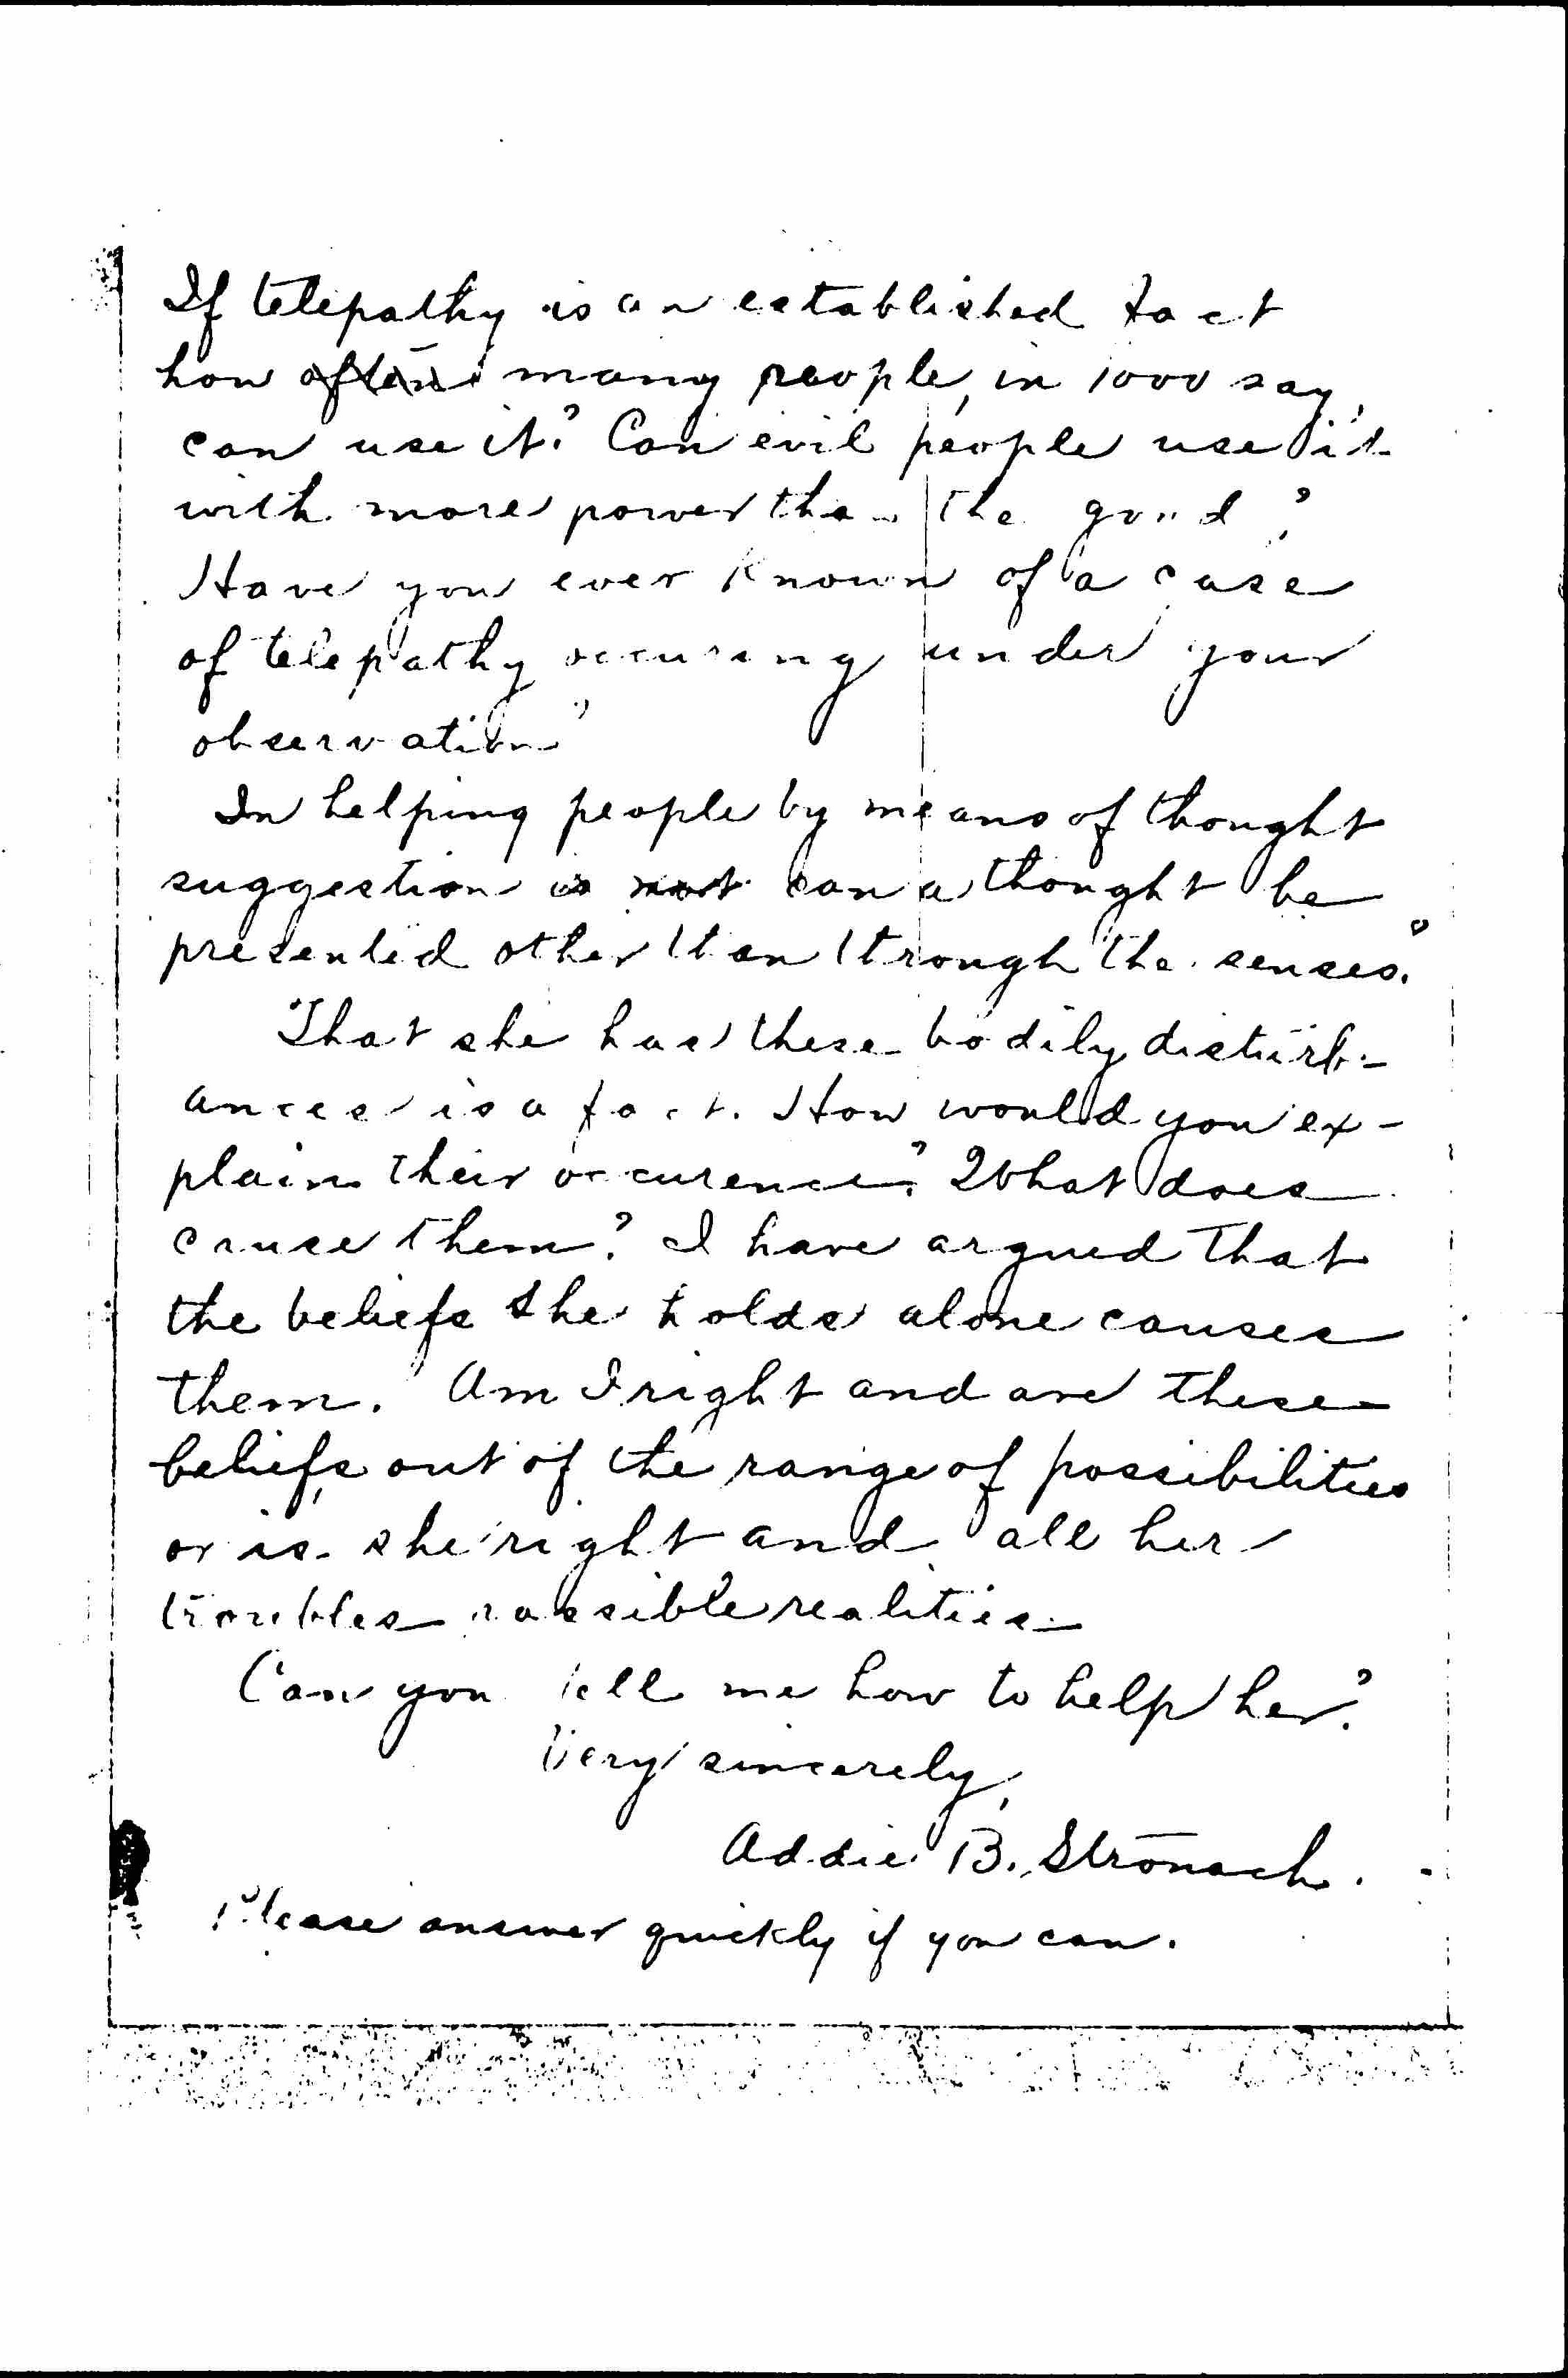 If telepathy is an established fact
how often many people, in 1000 say,
can use it? Can evil people use it
with more power than the good?
Have you ever known of a case
of telepathy occuring under your
observation?
In helping people by means of thought
suggestion is not can a thought be
presented other than through the senses?
That she has these bodily disturb-
ances is a fact. How would you ex-
plain their occurence? What does
cause them? I have argued that
the beliefs she holds alone causes
them. Am I right and are these
beliefs out of the range of possibilities
or is she right and all her
troubles possible realities
Can you tell me how to help her?
Very sincerely,
Addie B. Stronach.
Please answer quickly if you can.